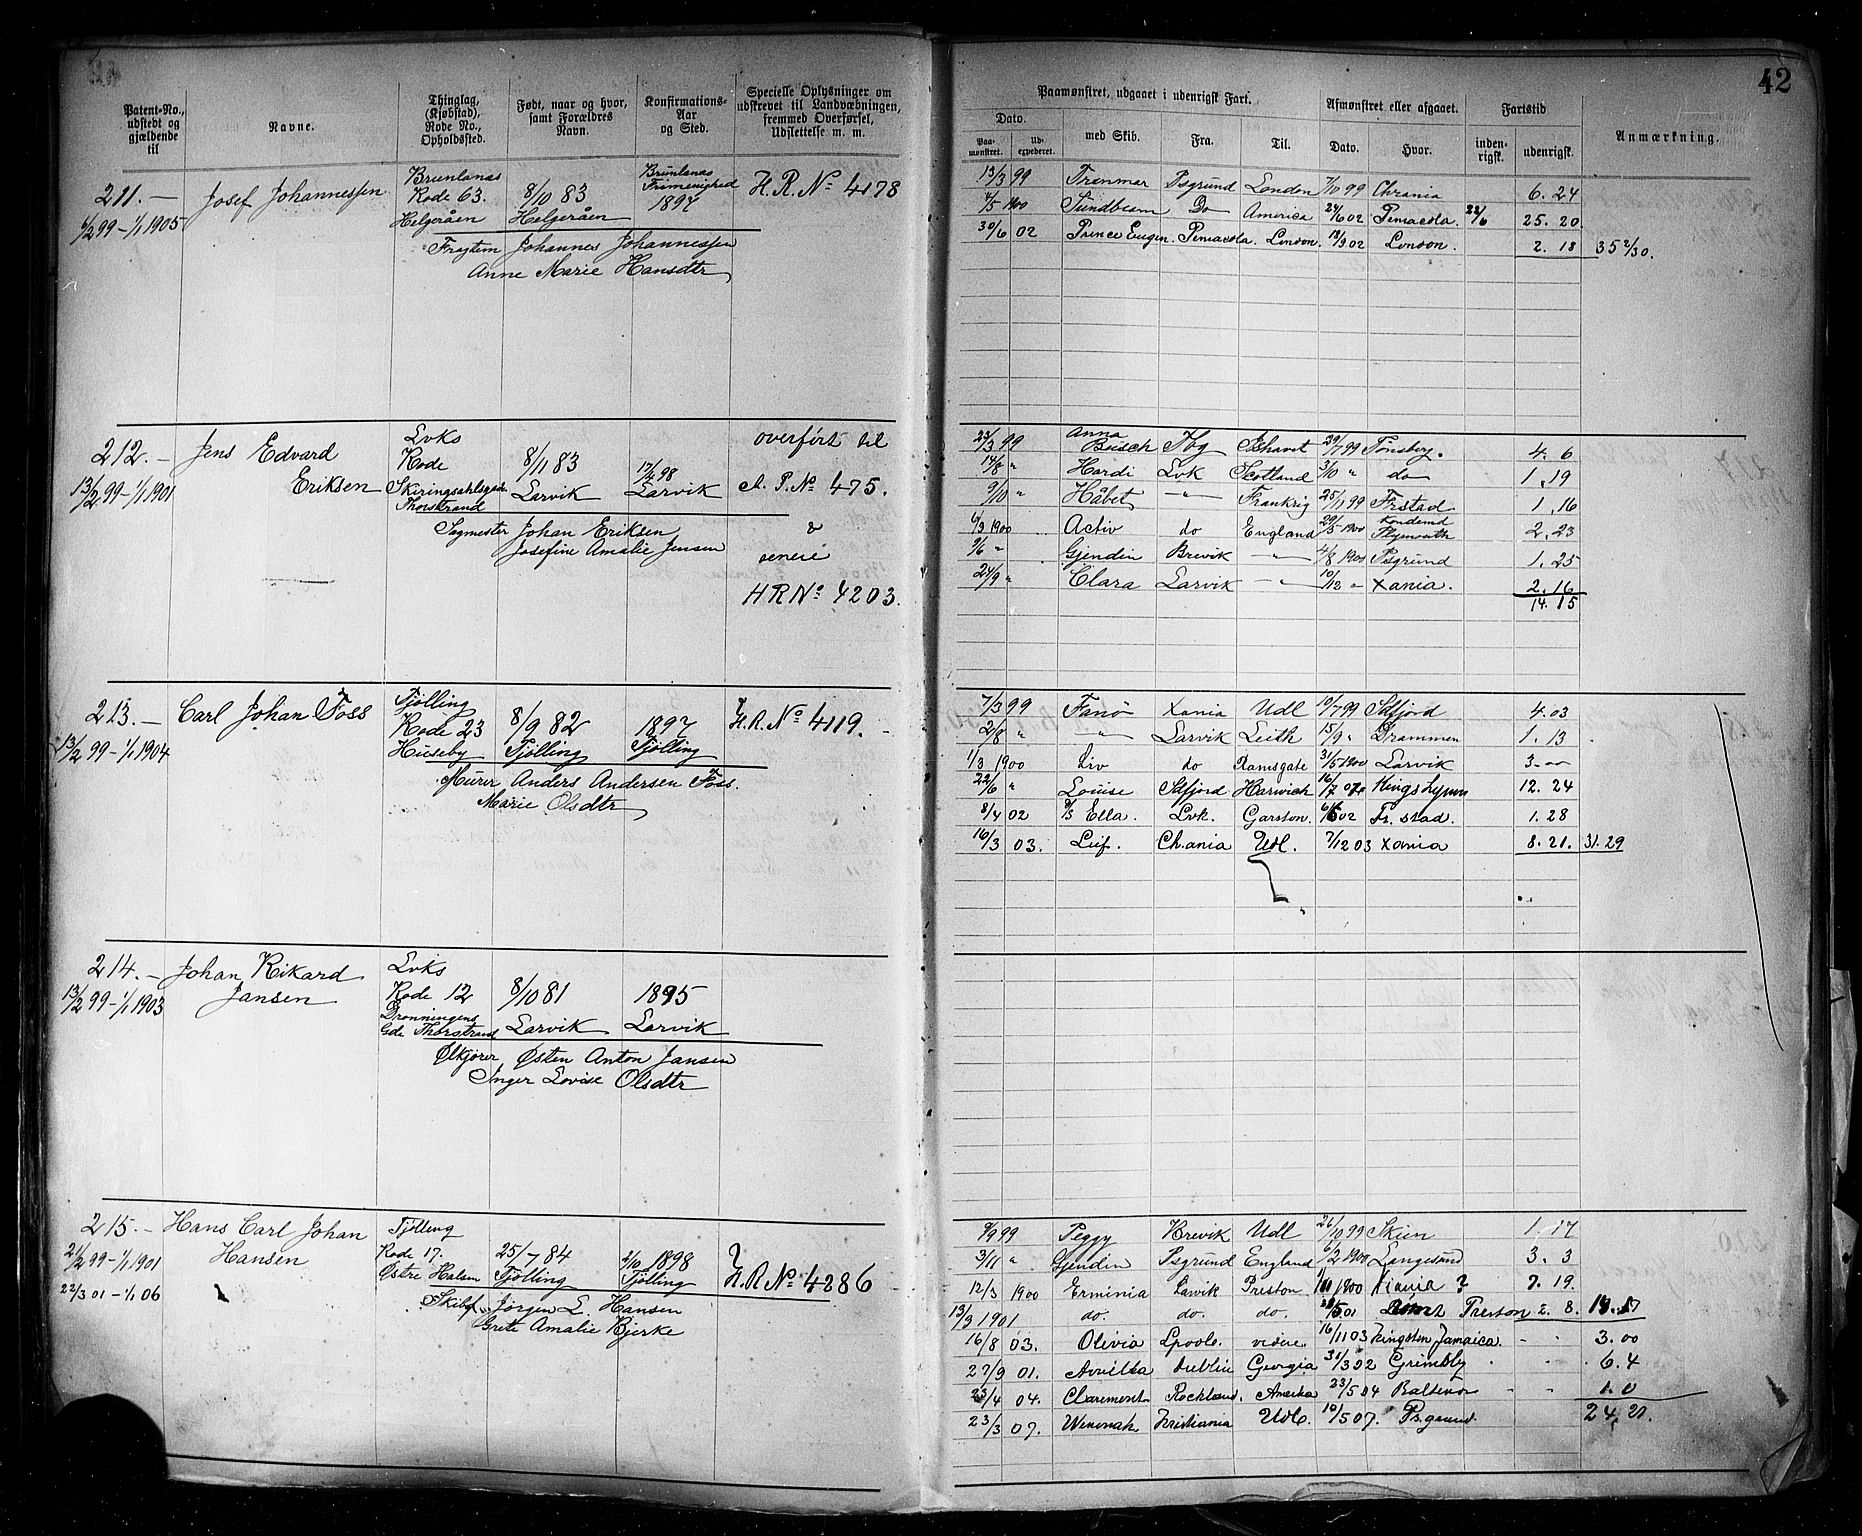 42
Patent-No., udstedt og gjældende til
Navne.
Thinglag, (Kjøbstad), Rode No., Opholdssted.
Født, naar og hvor, samt Forældres Navn.
Konfirmations-Aar og Sted.
Specielle Oplysninger om udskrevet til Landvæbningen, fremmed Overførsel, Udslettelse m. m.
Paamønstret, udgaaet i udenrigsk Fart.
Afmønstret eller afgaaet.
Fartstid
Anmærkning.
Dato.
med Skib.
Fra.
Til.
Dato.
Hvor.
inden-rigsk.
udenrigsk.
Paa-mønstret.
Ud-expederet.
211. — Josef Johannessen
Brunlanæs
Rode 63.
Helgeråen
8/10 83
Helgeråen
Brunlanæs
Frimenighed
1897
H. R. No 4178
99 – 1/1 1905
Johannes Johannessen
Anne Marie Hansdtr
13/3 99 Psgrund London 7/10 99 Chrania 6. 24
1900 Sundbeam Do America 24/6 02 Pensacola 25. 20
30/6 02 Prince Eugen. Pensacola. London. 18/9 02 London. 2. 18 35 2/30.
212. — Jens Edvard
Eriksen
13/2 99 – 1/1 1901
Lvks
Rode
Skiringsahlsgade
Thorstrand
8/11 83
Larvik
98
Larvik
overført til
A. P. No 475.
&
senere
H R No 4203.
Sagmester Johan Eriksen
Josefine Amalie Jensen
23/3 99 Anna
Busch Tbg 29/7 99 Tønsberg. 4. 6
14/8 " Hardi Lvk Scotland 3/10 " do 1. 19
9/10 " Håbet — " — Frankrig 25/11 99 Frstad 1. 16
1900 Activ do England 29/5 1900 Kondemd
Plymouth 2. 23
9/6 " Gjendin Brevik — " — 4/8 1900 Psgrund 1. 25
24/9 " Clara Larvik — " — 10/12 " Xania. 2. 16
14. 15
213. — Carl Johan Foss
13/2 99 – 1/1 1904
Tjølling
Rode 23
Huseby
8/9 82
Tjølling
1897
Tjølling
H. R. No 4119.
Murer Anders Andersen Foss.
Marie Olsdtr
7/3 99 Fanö Xania Udl 10/7 99 Sdfjord 4. 03
2/8 " — " — Larvik Leith 15/9 " Drammen 1. 13
1/3 1900 Liv do Ramsgate 31/5 1900 Larvik 3. —
22/6 " Louise Sdfjord Harwich 16/7 Kings Lynn 12. 24
8/4 02 Ella. Lvk. Garston. 02 Fr. stad. 1. 28
16/3 03. Leif. Ch.ania Udl. 7/12 03 Xania 8. 21. 31. 29
214. — Johan Rikard
Jansen
13/2 99 – 1/1 1903
Lvks
Rode 12
Dronningens
Gde Thorstrand
8/10 81
Larvik
1895
Larvik
Ølkjører Østen Anton Jansen
Inger Lovise Olsdtr
215. — Hans Carl Johan
Hansen
21/2 99 – 1/1 1901
22/3 01 – 1/1 06
Tjølling
Rode 17.
Østre Halsen
25/7 84
Tjølling
2/10 1898
Tjølling
H. R No 4286
Jörgen L. Hansen
Grete Amalie Bjerke
9/9 99 Peggy Brevik Udl 26/10 99 Skien 1. 17
3/11 " Gjendin Psgrund England 6/2 1900 Langesund 3. 3
12/3 1900 Erminia Larvik Preston 1900 7. 19.
13/3 1901 do. do. do. 01 Preston 2. 8.
16/8 03. Olivia Lpool. videre. 16/11 03 Kingston Jamaica. 3. 00
27/9 01. Dublin Georgia 31/3 02 Grimsby 6. 4
23/4 04. Claremont Rockland. Amerika 23/5 04 1. 0
23/3 07. Wenonah Kristiania Udl. 10/5 07. Psgrund 24. 21.